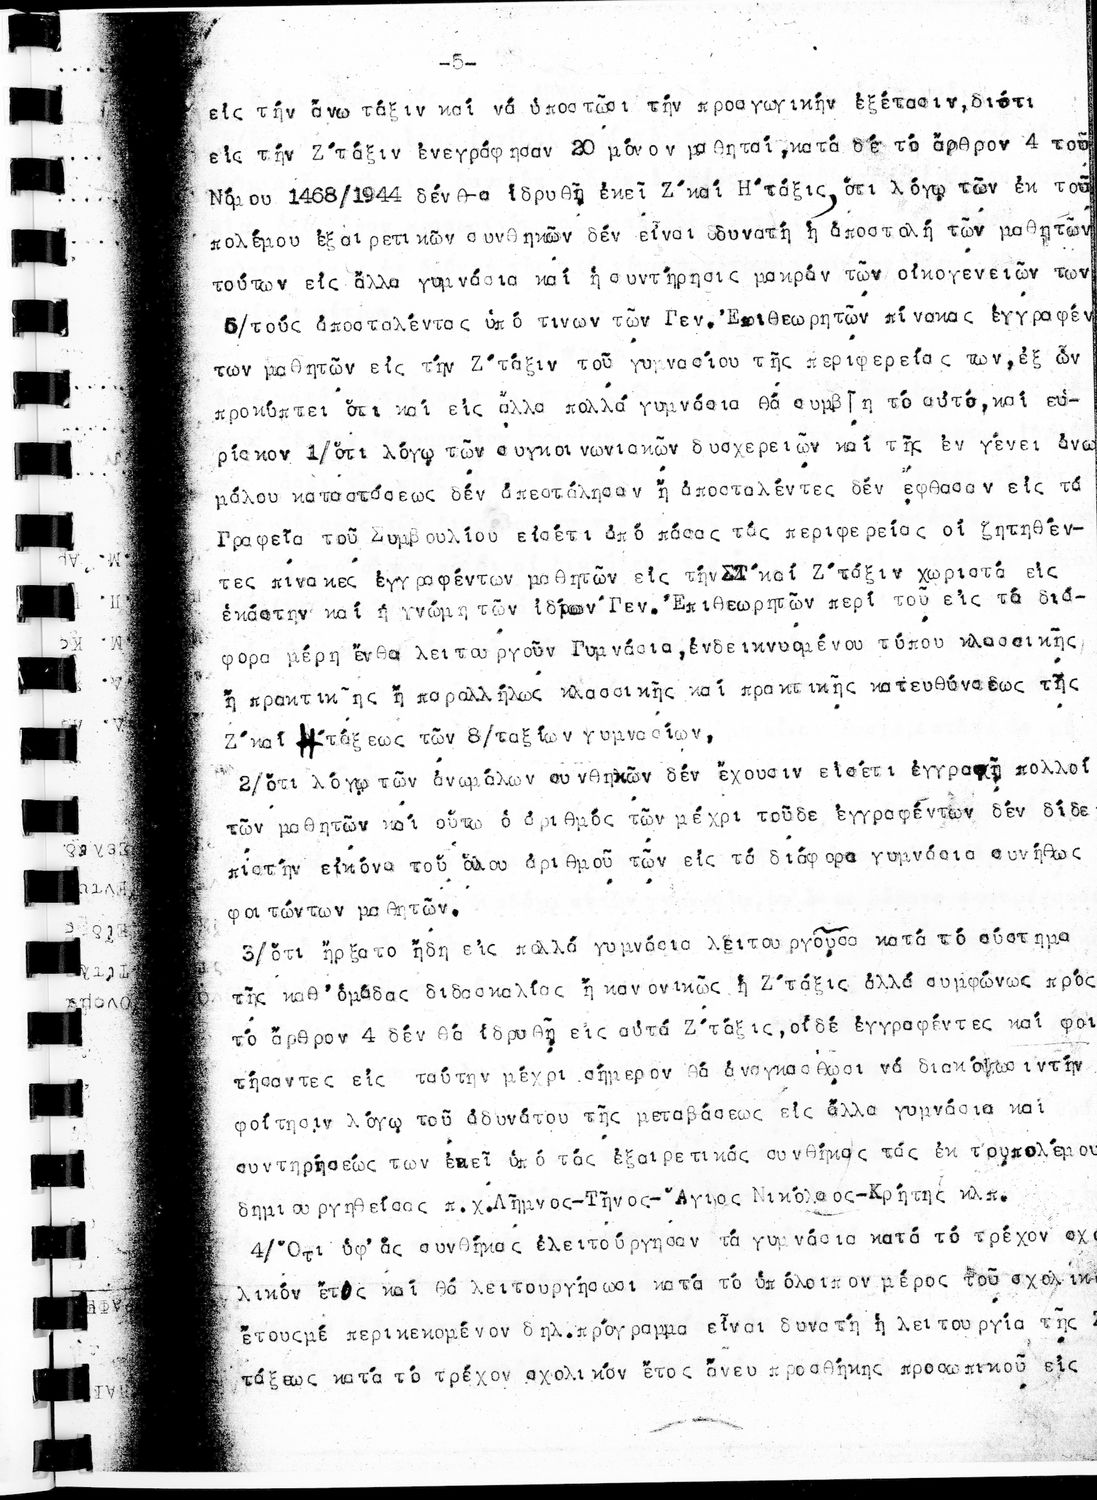 -5-
εἰς τήν ἄνω τάξιν καί νά ὑποστῶσι τήν προαγωγικήν ἐξέτασιν,διότι
εἰς τήν Ζ΄τάξιν ἐνεγράφησαν 20 μόνον μαθηταί,κατά δέ τό ἄρθρον 4 τοῦ
Νόμου 1468/1944 δένθ-α ἱδρυθῇ ἐκεῖ Ζ΄καί Η΄τάξις, ὅτι λόγῳ τῶν ἐκ τοῦ
πολέμου ἐξαιρετικῶν συνθηκῶν δέν εἶναι δυνατή ἡ ἀποστολή τῶν μαθητῶν
τούτων εἰς ἄλλα γυμνάσια καί ἡ συντήρησις μακράν τῶν οἰκογενειῶν των
5/τούς ἀποσταλέντας ὑπό τινων τῶν Γεν.Ἐπιθεωρητῶν πίνακας ἐγγραφέν
των μαθητῶν εἰς τήν Ζ΄τάξιν τοῦ γυμνασίου τῆς περιφερείας των,ἐξ ὧν
προκύπτει ὅτι καί εἰς ἄλλα πολλά γυμνάσια θά συμβῇ τό αὐτό,καί εὑ-
ρίσκον 1/ὅτι λόγῳ τῶν συγκοινωνιακῶν δυσχερειῶν καί τῆς ἐν γένει ἀνω
μάλου καταστάσεως δέν ἀπεστάλησαν ἤ ἀποσταλέντες δέν ἔφθασαν εἰς τά
Γραφεῖα τοῦ Συμβουλίου εἰσέτι ἀπό πάσας τάς περιφερείας οἱ ζητηθέν-
τες πίνακες ἐγγραφέντων μαθητῶν εἰς τήνΣΤ΄καί Ζ΄τάξιν χωριστά εἰς
ἑκάστην καί ἡ γνώμη τῶν ἰδίων Γεν.Ἐπιθεωρητῶν περί τοῦ εἰς τά διά-
φορα μέρη ἔνθα λειτουργοῦν Γυμνάσια,ἐνδεικνυομένου τύπου κλασσικῆς
ἤ πρακτικ῀ης ἤ παραλλήλως κλασσικῆς καί πρακτικῆς κατευθύνσεως τῆς
Ζ΄καί Η΄τάξεως τῶν 8/ταξίων γυμνασίων,
2/ὅτι λόγῳ τῶν ἀνωμάλων συνθηκῶν δέν ἔχουσιν εἰσέτι ἐγγραφῆ πολλοί
τῶν μαθητῶν καί οὕτω ὁ ἀριθμός τῶν μέχρι τοῦδε ἐγγραφέντων δέν δίδε
πιστήν εἰκόνα τοῦ ὅλου ἀριθμοῦ τῶν εἰς τά διάφορα γυμνάσια συνήθως
φοιτώντων μαθητῶν.
3/ὅτι ἤρξατο ἤδη εἰς πολλά γυμνάσια λειτουργοῦσα κατά τό σύστημα
τῆς καθ'ὁμάδας διδασκαλίας ἤ κανονικῶς ἡ Ζ΄τάξις ἀλλά συμφώνως πρός
τό ἄρθρον 4 δέν θά ἱδρυθῇ εἰς αὐτά Ζ΄τάξις,οἱδέ ἐγγραφέντες καί φοι
τήσαντες εἰς ταύτην μέχρι σήμερον θά ἀναγκασθῶσι νά διακόψωσιντήν
φοίτησιν λόγῳ τοῦ ἀδυνάτου τῆς μεταβάσεως εἰς ἄλλα γυμνάσια καί
συντηρήσεώς των ἐκεῖ ὑπό τάς ἐξαιρετικάς συνθήκας τάς ἐκ τουπολέμου
δημιουργηθείσας π.χ.Λῆμνος-Τῆνος-Ἅγιος Νικόλαος-Κρήτης κλπ.
4/Ὅτι ὑφ'ἅς συνθήκας ἐλειτούργησαν τά γυμνάσια κατά τό τρέχον σχο
λικόν ἔτος καί θά λειτουργήσωσι κατά τό ὑπόλοιπον μέρος τοῦ σχολικ
ἔτουςμέ περικεκομένον δηλ.πρόγραμμα εἶναι δυνατή ἡ λειτουργία τῆς Ζ
τάξεως κατά τό τρέχον σχολικόν ἔτος ἄνευ προσθήκης προσωπικοῦ εἰς